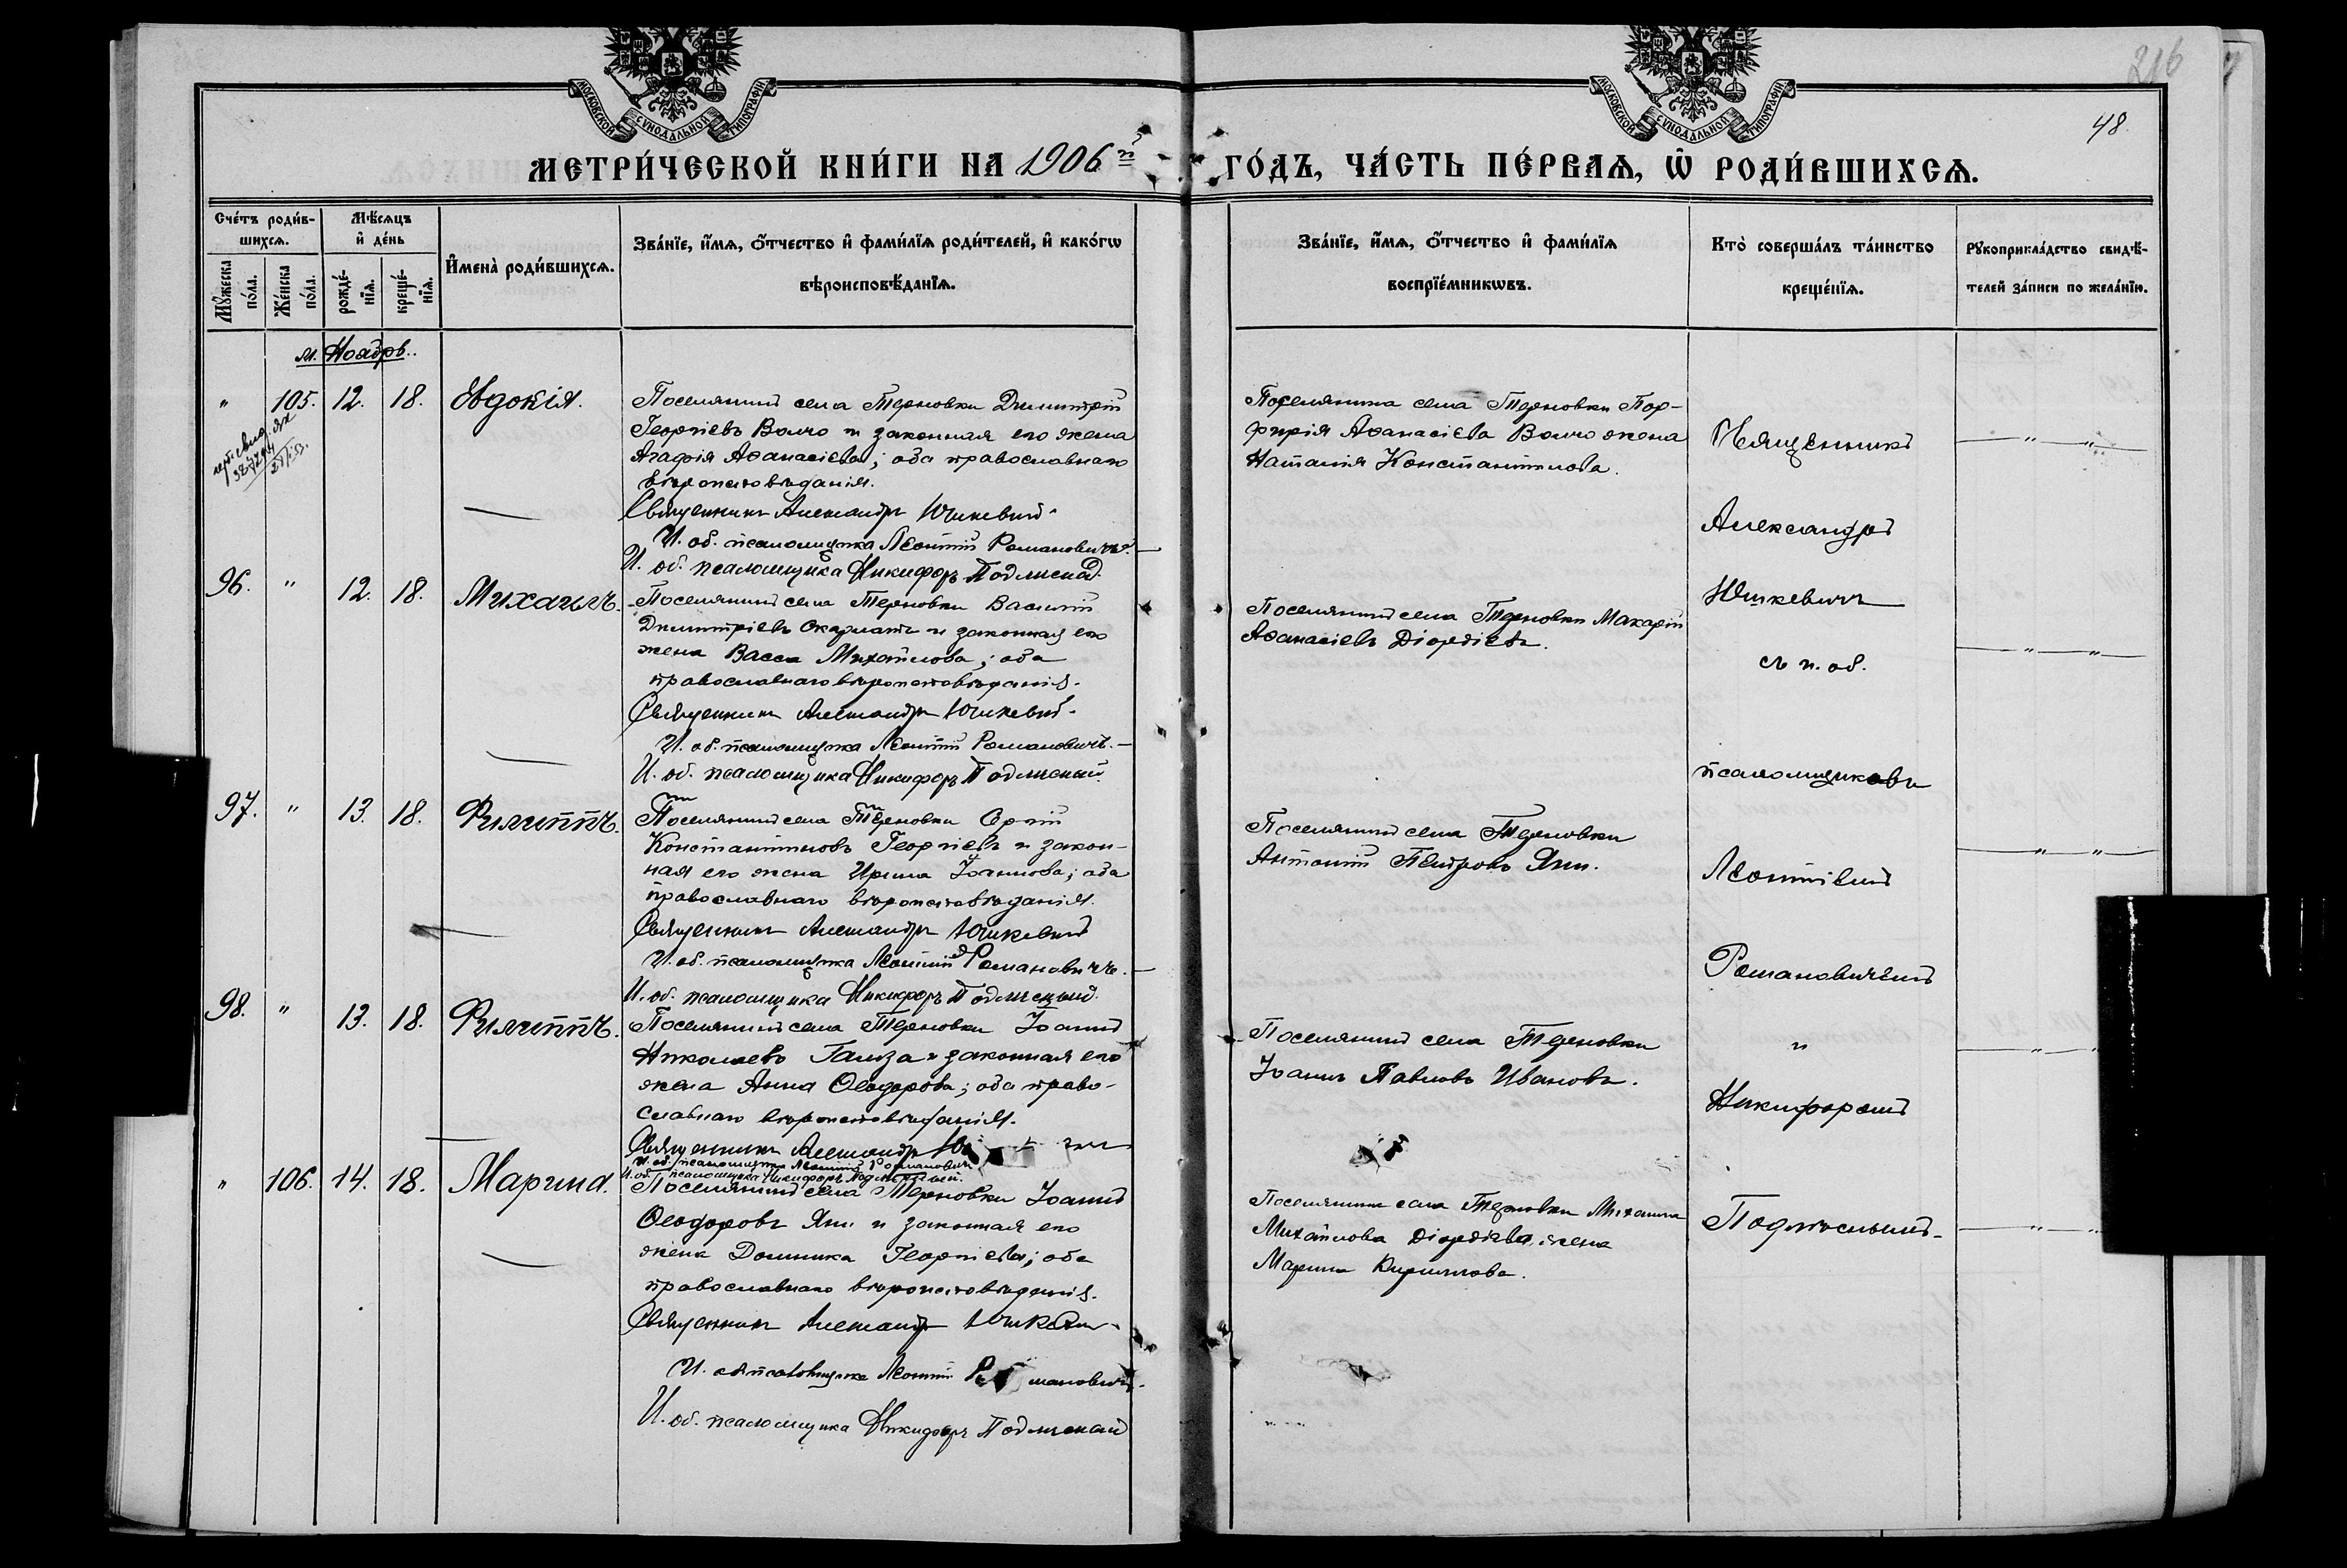 216
48.
МОСКОВСКОЙ СУНОДАЛЬНОЙ ТИПОГРАФІИ
МОСКОВСКОЙ СУНОДАЛЬНОЙ ТИПОГРАФІИ
МЕТРИ́ЧЕСКОЙ КНИ́ГИ НА 1906 й ГО́ДЪ, ЧА́СТЬ ПЕ́РВАѦ, Ѽ РОДИ́ВШИХСѦ.
Сче́тъ роди́в-
шихсѧ.
Мꙋ́жеска по́ла.
Же́нска по́ла.
Мѣ́сѧцъ
и҆ де́нь
рожде́-
нїѧ.
креще́-
нїѧ.
И҆мена̀ роди́вшихсѧ.
Зва́нїе, и҆́мѧ, ѻ҆́тчество и҆ фами́лїѧ роди́телей, и҆ како́гѡ
вѣроисповѣ́данїѧ.
Зва́нїе, и҆́мѧ, ѻ҆́тчество и҆ фами́лїѧ
воспрїе́мникѡвъ.
Кто̀ соверша́лъ та́инство
креще́нїѧ.
Рꙋкоприкла́дство свидѣ́-
телей за́писи по жела́нїю.
м. Ноябрь.
" 105. 12. 18. Евдокія.
Поселянинъ села Терновки Димитрій
Георгіевъ Волчо и законная его жена
Агафія Аѳанасіева; оба православнаго
вѣроисповѣданія.
Священникъ Александръ Юшкевичъ.
И. об. псаломщика Леонтій Романовичъ.
И. об. псаломщика Никифоръ Подлѣсный.
Поселянина села Терновки Пор-
фирія Аѳанасіева Волчо жена
Наталія Константинова.
Священникъ
Александръ
Юшкевичъ
съ и. об.
псаломщиковъ
Леонтіемъ
Романовичемъ
и
Никифоромъ
Подлѣснымъ.
96. " 12. 18. Михаилъ.
Поселянинъ села Терновки Василій
Димитріевъ Окарланъ и законная его
жена Васса Михайлова; оба
православнаго вѣроисповѣданія.
Священникъ Александръ Юшкевичъ.
И. об. псаломщика Леонтій Романовичъ.
И. об. псаломщика Никифоръ Подлѣсный.
Поселянинъ села Терновки Макарій
Аѳанасіевъ Діордіевъ.
97. " 13. 18. Филиппъ.
Поселянинъ села Терновки
Константиновъ Георгіевъ и закон-
ная его жена Ирина Іоаннова; оба
православнаго вѣроисповѣданія.
Священникъ Александръ Юшкевичъ
И. об. псаломщика Леонтій Романовичъ.
И. об. псаломщика Никифоръ Подлѣсный.
Поселянинъ села Терновки
Антоній Петровъ Яни.
98. " 13. 18. Филиппъ.
Поселянинъ села Терновки Іоаннъ
Николаевъ Ганза и законная его
жена Анна Ѳеодорова; оба право-
славнаго вѣроисповѣданія.
Священникъ Александръ
И. об. псаломщика Леонтій Романовичъ
И. об. псаломщика Никифоръ Подлѣсный.
Поселянинъ села Терновки
Іоаннъ Павловъ Ивановъ.
" 106. 14. 18. Марина.
Поселянинъ села Терновки Іоаннъ
Ѳеодоровъ Яни и законная его
жена Домника Георгіева; оба
православнаго вѣроисповѣданія.
Священникъ Александръ Юшкевичъ.
И. об. псаломщика Леонтій Романовичъ.
И. об. псаломщика Никифоръ Подлѣсный
Поселянина села Терновки Михаила
Михайлова Діордіева жена
Марина Кириллова.